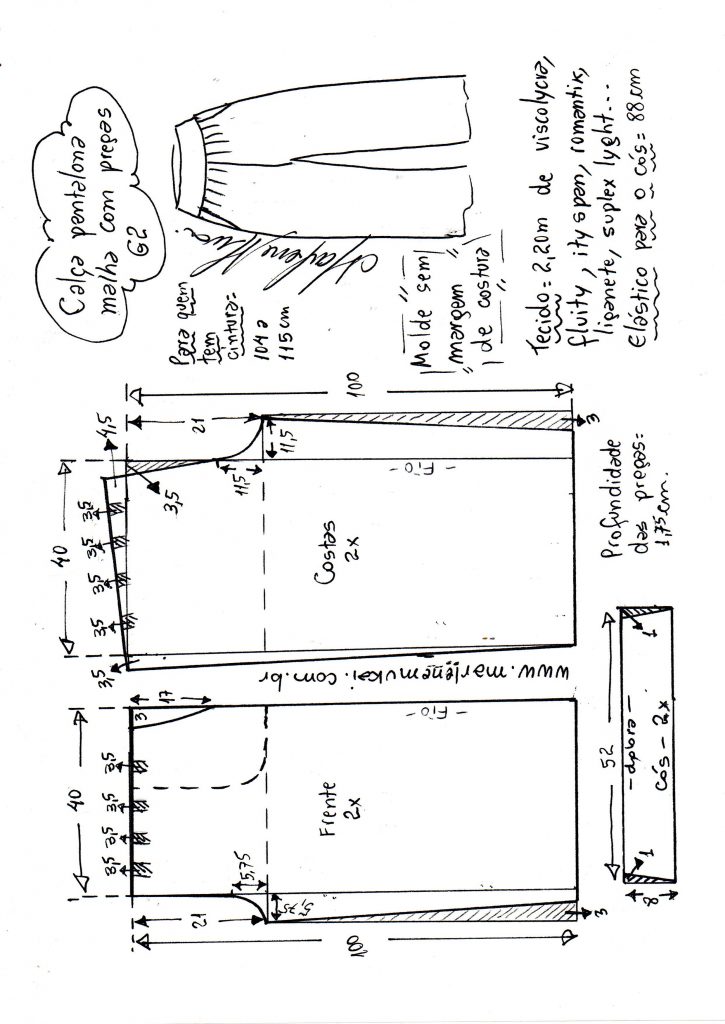 Calça pantalona
malha com pregas
G2
Para quem
tem
cintura=
104 a
115cm
Marlene Mukai
"Molde sem
margem
de costura"
Tecido = 2,20m de viscolycra,
fluity, ity span, romantik,
liganete, suplex lyght...
Elástico para o cós = 88cm
4,5
3,5
3,5
3,5
3,5
3,5
3,5
40
21
100
11,5
11,5
3
- Fio -
Costas
2x
Profundidade
das pregas=
1,75cm.
www.marlenemukai.com.br
40
3,5
3,5
3,5
3,5
3
17
- Fio -
Frente
2x
5,75
5,75
21
100
3
52
1
1
- dobra -
cós - 2x
8